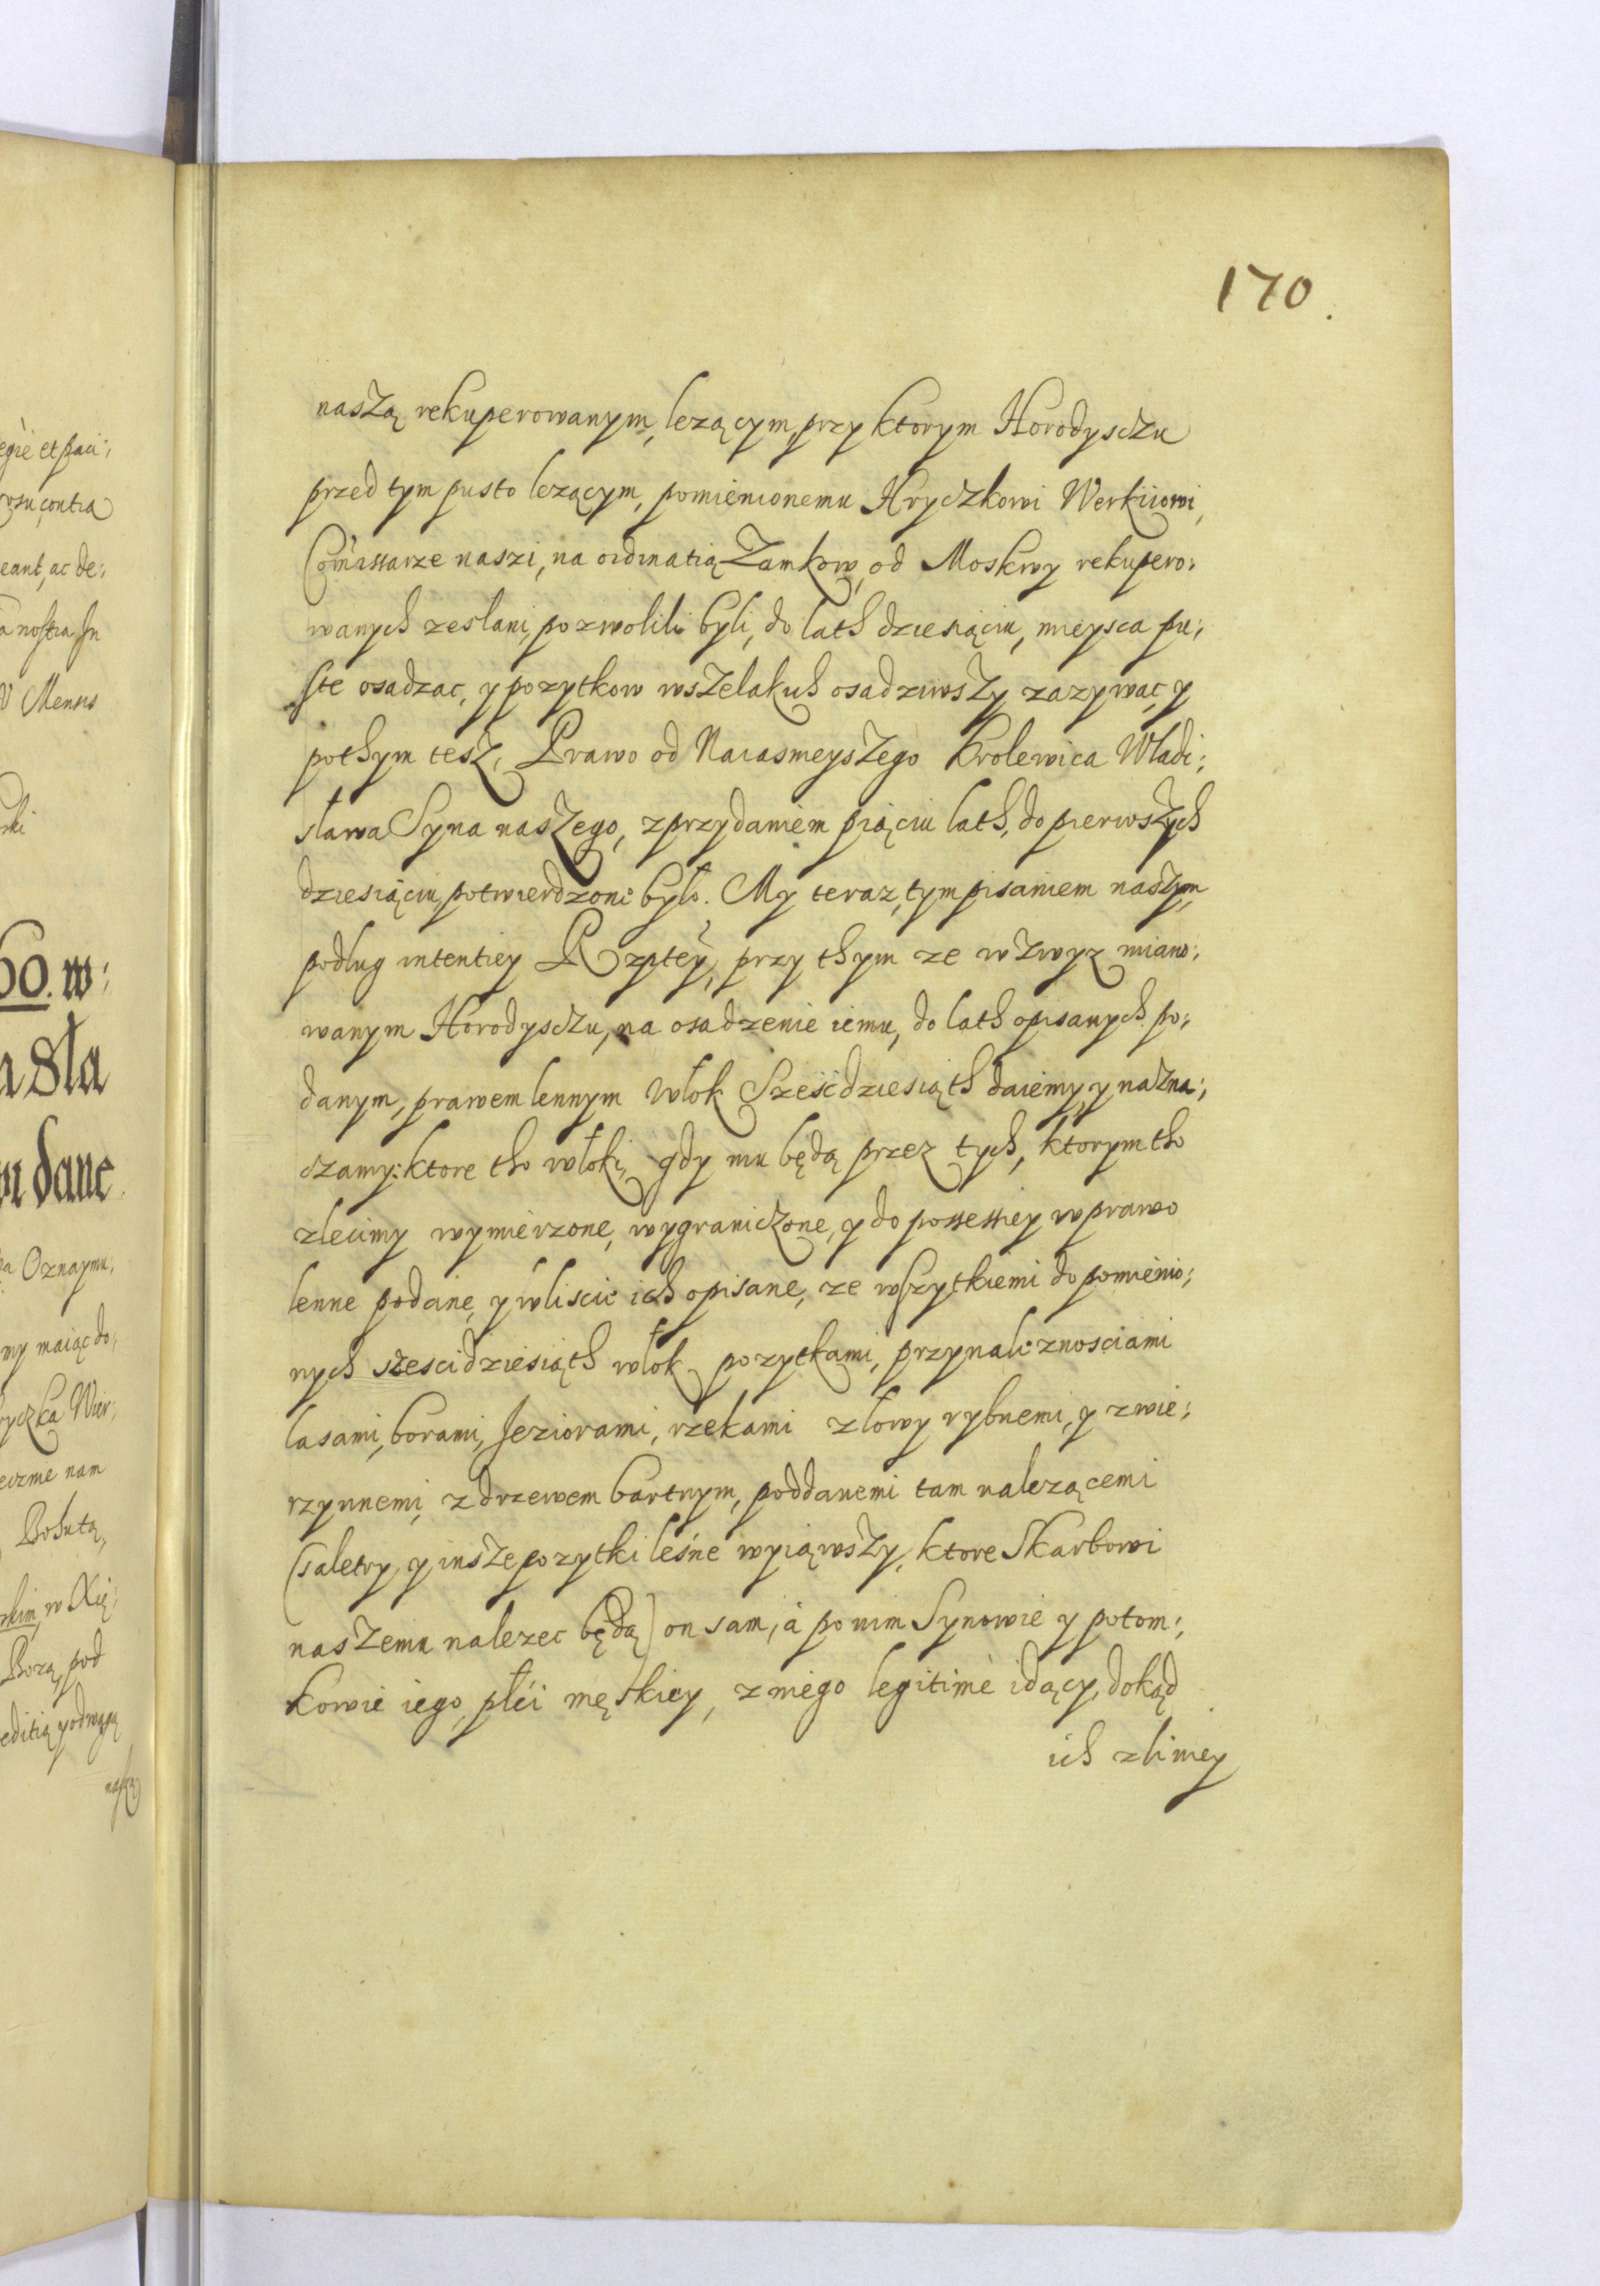 170.
naszą rekuperowanym, lezącym, przy ktorym Horodysczu
przed tym pusto lezącym, pomienionemu Hryczkowi Werkiiowi,
Comissarze naszi, na ordinatią Zamkow, od Moskwy rekupero:
wanych zesłani, pozwolili byli, do lath dziesiąciu, mieysca pu:
ste osadzac, y pozytkow wszelakich osadziwszy zazywac, y
pothym tesz, Prawo od Naiasnieyszego Krolewica Wladi:
sława Syna naszego, z przydaniem piąciu lath, do pierwszych
dziesiąciu potwierdzone było. My teraz, tym pisaniem naszym,
podług intentiey Rzptey, przy thym ze wzwyz miano:
wanym Horodysczu, na osadzenie iemu, do lath opisanych po:
danym, prawem lennym włok Sześcdziesiąth daiemy, y nazna:
czamy: ktore tho włoki, gdy mu będą przez tych, ktorym tho
zlecimy wymierzone, wygraniczone, y do possessiey w prawo
lenne podane, y w liscie ich opisane, ze wszytkiemi do pomienio:
nych szescidziesiąth włok pozytkami, przynaleznosciami
lasami, borami, Jeziorami, rzekami z łowy rybnemi, y zwie:
rzynnemi, z drzewem bartnym, poddanemi tam nalezącemi
(saletry, y insze pozytki leśne wyiąwszy, ktore Skarbowi
naszemu nalezec będą) on sam, à po nim Synowie y potom:
kowie iego, płci męskiey, z niego legitimè idący, dokąd
ich z liniey
egiè et paci:
contra
eant, ac de:
nostra In
Mensis
60. w:
Sla
dane
Oznaymu:
my maiąc do:
ryczka Wer:
nam
Bohutą,
w Xię:
Borą, pod
editią y odwagą
naszą